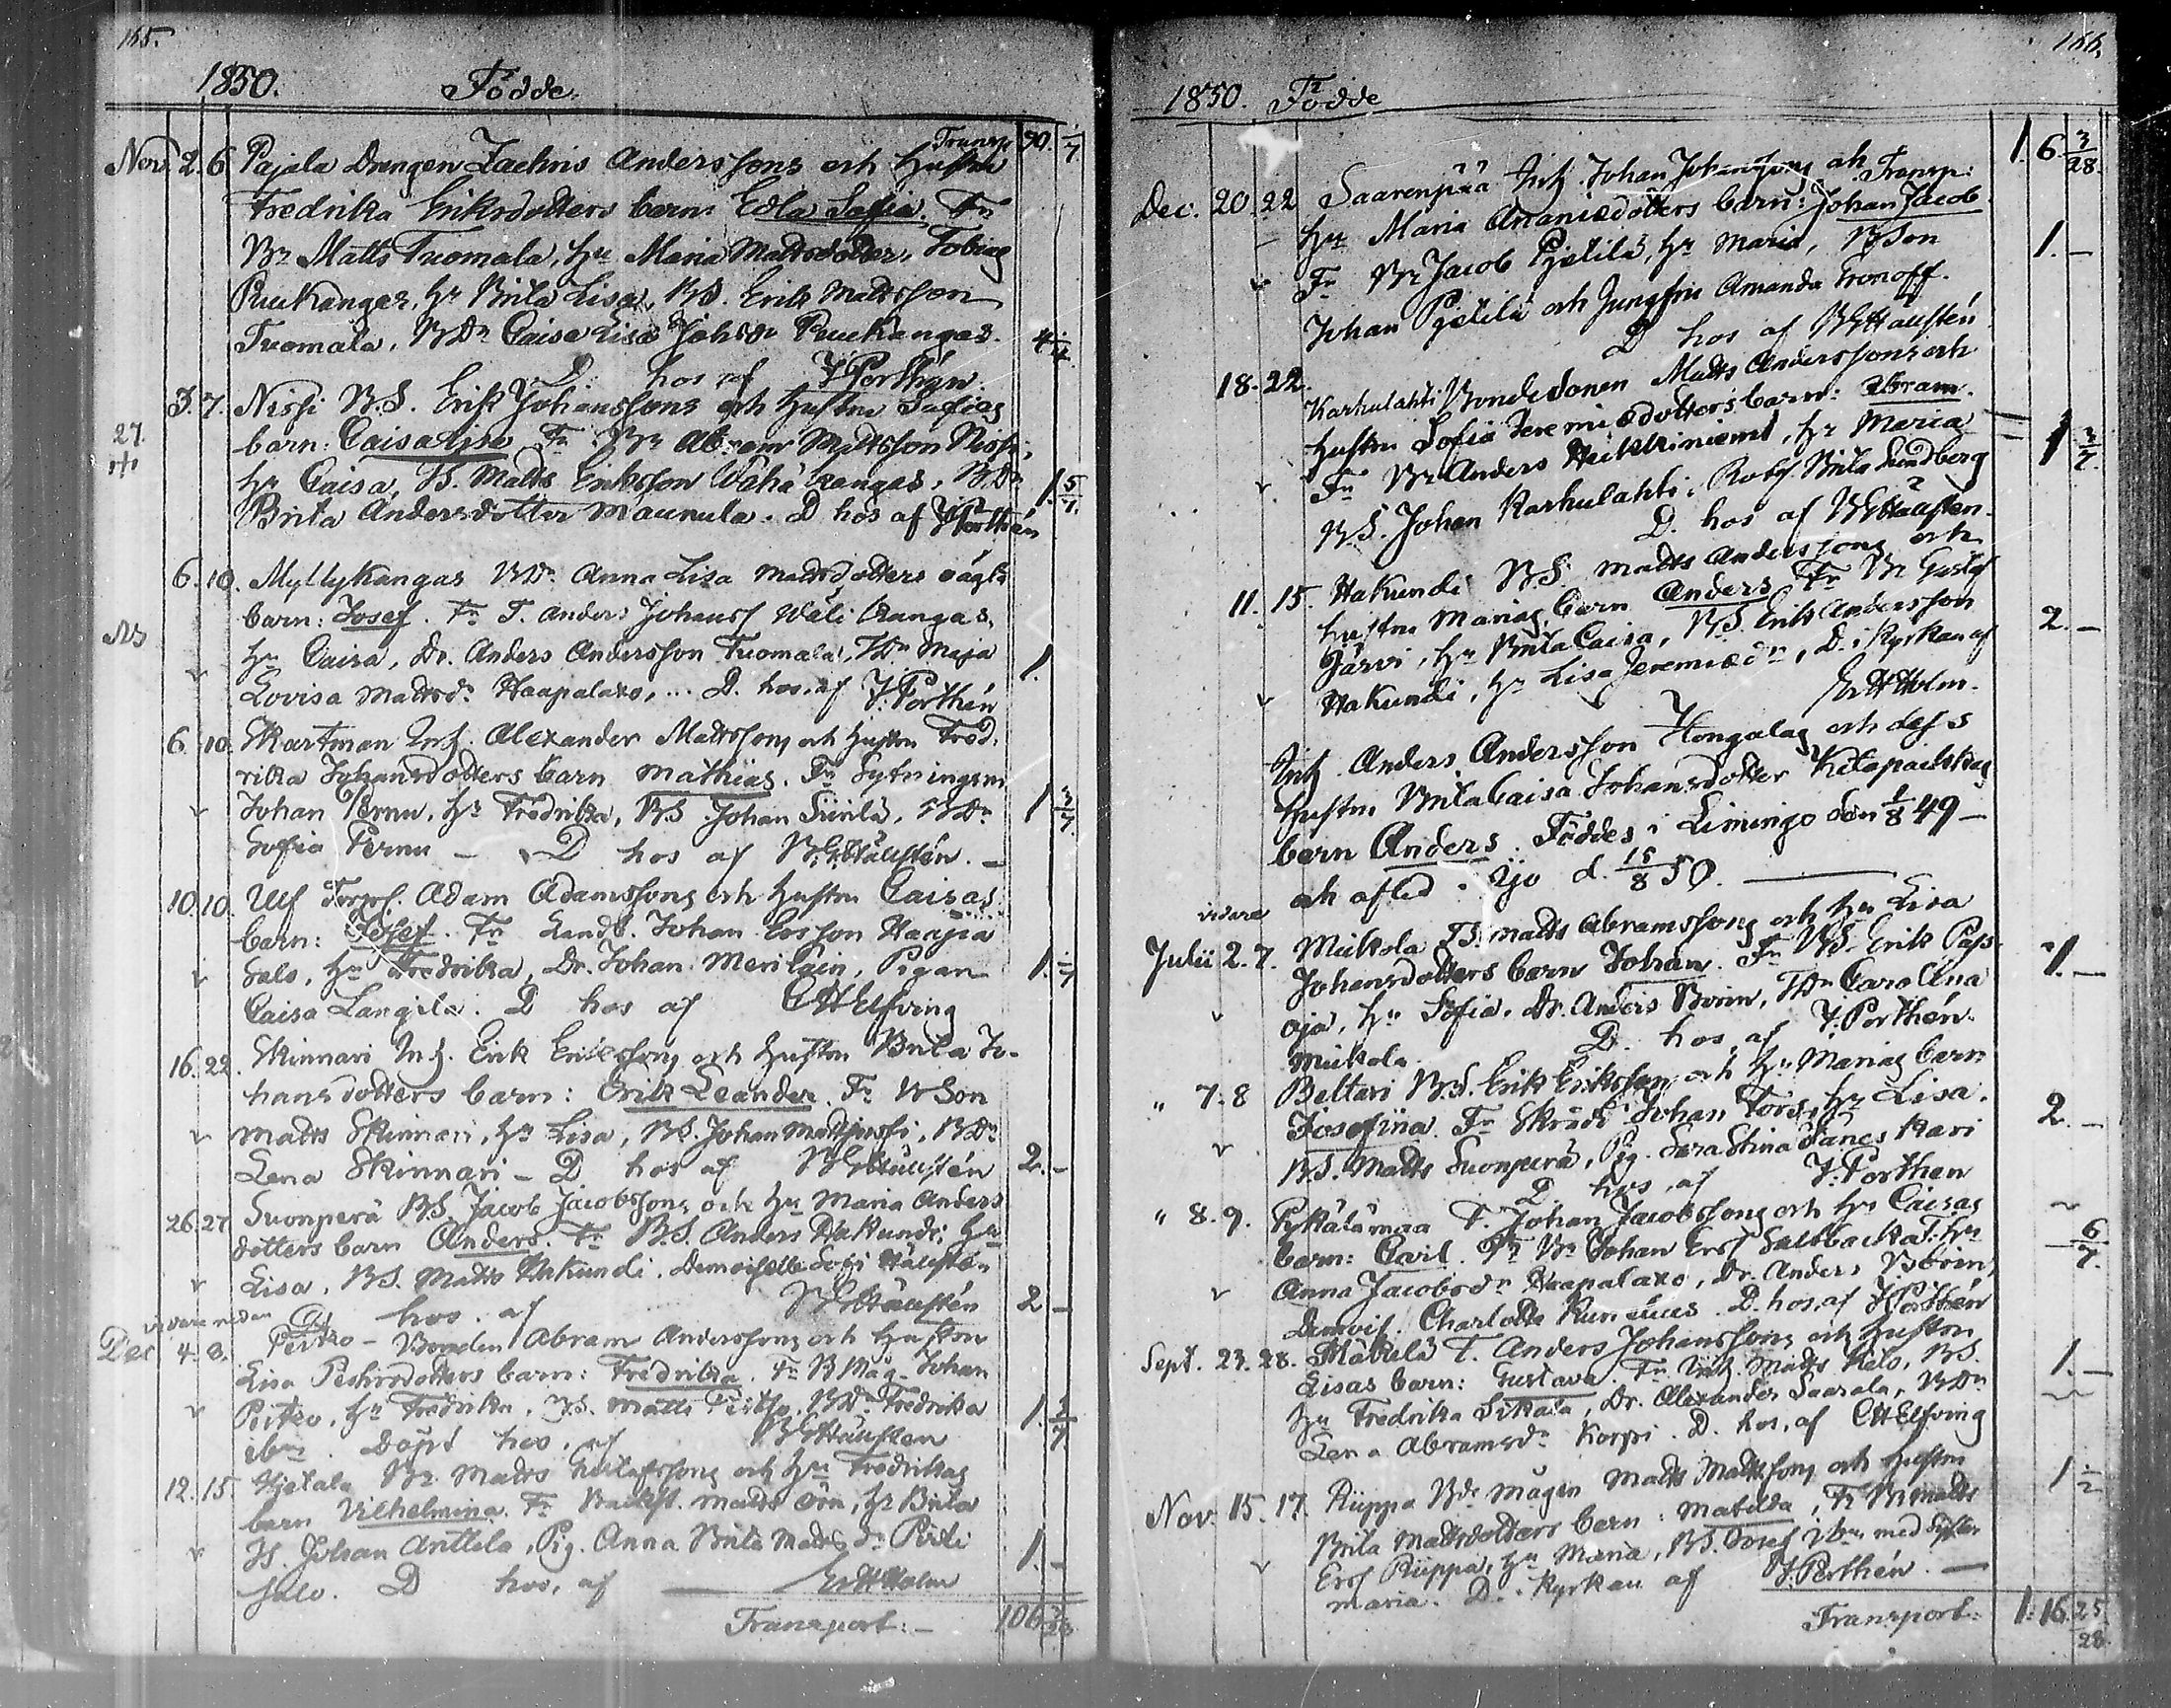 165.
1850. Födde.
Transp. 90. 1/7
Nov. 2. 6 Pajala Drengen Zachris Anderssons och Hustru
Fredrika Eriksdotters barn: Edla Sofia. Fr
Br Matts Tuomala, Hu Maria Mattsdotter, Tobias
Ruckangas, Hr Brita Lisa, BS. Erik Mattsson
Tuomala, BDr Caisa Lisa Johsdr Ruckangas.
D. hos af J Porthén.
3. 7. Nissi B.S. Erik Johanssons och Hustru Sofias
27. barn: Caisa Lisa Fr Br Abram Mattsson Nissi,
Hr Caisa, B. Matts Eriksson Wähä Kangas, BDr 1. 5/7
Brita Andersdotter Maunula. D hos af J Porthén
6. 10. Myllykangas BDr Anna Lisa Mattsdotters oägta
barn: Josef. Fr T. Anders Johanss Wäli Kangas,
Hu Caisa, Dr. Anders Andersson Tuomala, TDr Maja 1.
Lovisa Mattsdr Haapalaxo, ... D. hos af J: Porthén
6. 10. Skartman Inh. Alexander Mattssons och Hustru Fred.
rika Johansdotters barn Mathias. Fr Sytningsm.
Johan Pernu, Hr Fredrika, BS Johan Siirilä, BDr 1 3/7
Sofia Pernu — D hos af B.G. Hällstén. —
10. 10. Ulf Torps. Adam Adamssons och Hustru Caisas
barn: Josef. Fr Landb. Johan Ersson Haapa
Salo, Hu Fredrika, Dr. Johan Meriläin, Pigan 1. 1/7
Caisa Langila. D hos af C H Elfving
16. 22. Skinnari Inh. Erik Erikssons och Hustru Brita Jo-
hansdotters barn: Erik Leander. Fr B Son
Matts Skinnari, Hr Lisa, BS. Johan Mattjussi, BDr
Lena Skinnari — D hos af B G Hällstén 2. —
26. 27 Suonperä BS. Jacob Jacobssons och Hu Maria Anders
dotters barn Anders. Fr B.S. Anders Hakundi, Hu
Lisa, BS. Matts Hakundi. Demoiselle Sofi Hällstén
vidare nedan D hos af B G Hällstén 2 —
Dec 4. 8. Pertko — Bonden Abram Anderssons och Hustru
Lisa Pehrsdotters barn: Fredrika. Fr B Måg. Johan
Pertko, Hu Fredrika, BS. Matts Pertko, BDr Fredrika 1. 3/7
ibm. Döpt hos af B G Hällsten
12. 15. Hjetala Br. Matts Gustafssons och Hu Fredrikas
barn Vilhelmina. Fr Backst. Matts Örn, Hr Brita
Is. Johan Anttila, Pig. Anna Brita Mattsdr Pirti 1. —
Salo. D hos, af Er H Holm
Transport: — 106
166.
1850. Födde
Transp: 1. 6. 3/28.
Dec. 20. 22 Saarenpää Inh. Johan Johanssons och
Hu Maria Ananiædotters barn: Johan Jacob
Fr Br Jacob Pjetilä, Hr Maria, BSon 1. —
Johan Pjetilä och Jungfru Amanda Eronoff.
D hos af B G Hällstén
18. 22. Karhulahti Bondesonen Matts Anderssons och
Hustru Sofia Jeremiædotters barn: Abram.
Fr Br Anders Heikkiniemi, Hr Maria 1 3/7.
B.S. Johan Karhulahti. Brita Lundberg
D. hos af B G Hällsten.
11. 15. Hakundi BS. Matts Anderssons och
Hustru Marias barn Anders Fr Br Gustaf
Järvi, Hu Brita Caisa, BS. Erik Andersson 2. —
Hakundi, Hr Lisa Jeremiædr, D. i Kyrkan af
Er H Holm.
Inh. Anders Andersson Hongalas och dess
Hustru Brita Caisa Johansdotter Kitapaikkas
barn Anders. Föddes i Limingo den 1/8 49 —
och afled. Ijo d. 15/8 50.
vidare
Julii 2. 7. Muikola B. Matts Abramssons och Hu Lisa
Johansdotters barn Johan. Fr BS. Erik Pass- 1. —
oja, Hu Sofia, Dr. Anders Borin, TDr Carolina
Muikola. D. hos, af J: Porthén.
" 7. 8 Beltari BS. Erik Erikssons och Hu Marias barn
Josefina. Fr Skräd. Johan Fors, Hr Lisa. 2. —
BS. Matts Suonperä, Pig. Sara Stina Jänes Kari
D. hos, af J: Porthen
" 8. 9. Pykälämaa T. Johan Jacobssons och Hr Caisas
barn: Carl. Fr Br Johan Erss Saltbacka, Hr 6/7.
Anna Jacobsdr Haapalaxo, Dr. Anders Borin,
Demois. Charlotta Runelius. D. hos, af J: Porthén
Sept. 23. 28. Mäkelä T. Anders Johanssons och Hustru
Lisas barn: Gustava. Fr Inh. Matts Kelo, BS. 1. —
Hu Fredrika Sikala, Dr. Alexander Saarela, BDr
Lena Abramsdr Korpi. D. hos, af C H Elfving
Nov. 15. 17. Riippa Bde mågen Matts Mattssons och Hustru
Brita Mattsdotters barn: Matilda, Fr Br Matts
Erss Riippa, Hu Maria, BS. Josef ibm med Syster
Maria. D. i Kyrkan af J: Porthén. —
Transport: 1: 16. 25/28.